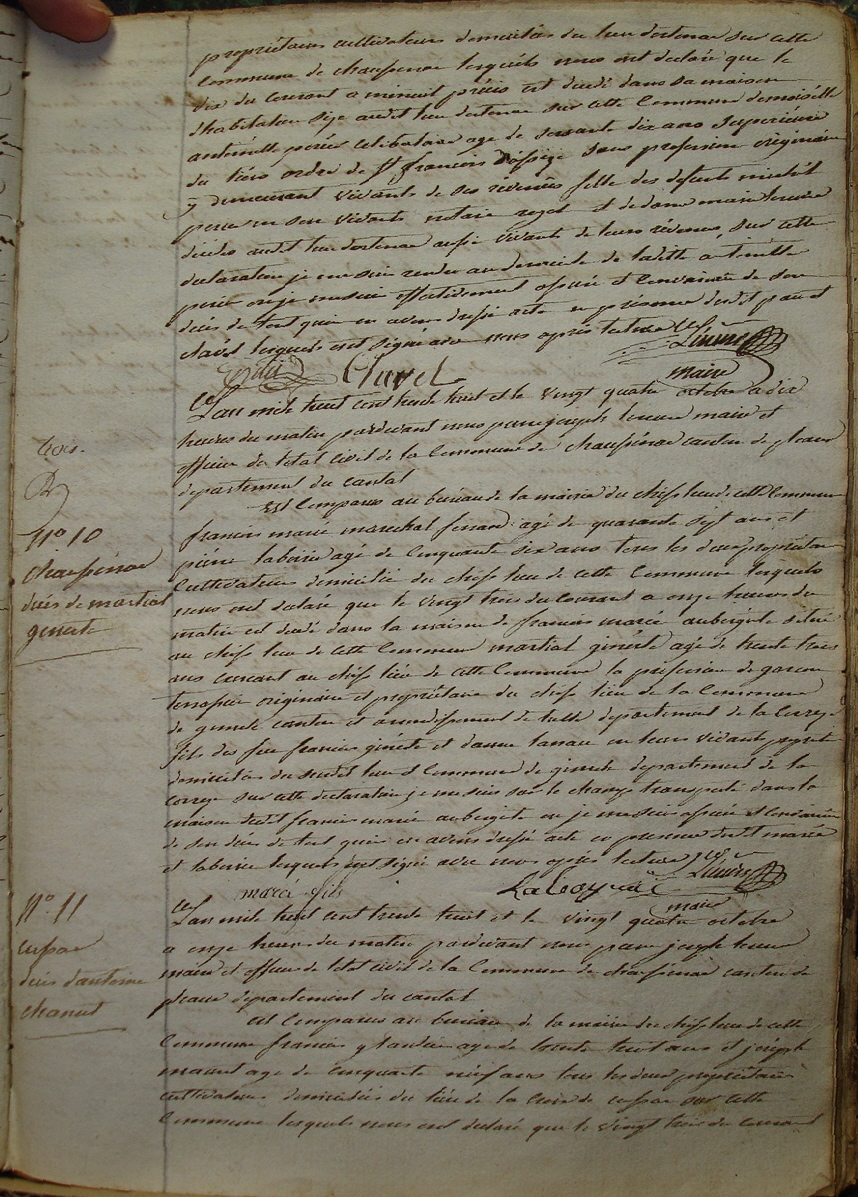 propriétaires cultivateurs domiciliés du lieu dostenac sur cette
Commune de chaussenac lesquels nous ont declaré que le
dix du Courant a minuit précis est decedé dans sa maison
d'habitation sise audit lieu dostenac sur cette Commune demoiselle
antoinette celibataire age de soixante dix ans Superieure
du tiers ordre de St francois D'assize sans profession originaire
y demeurant vivants de ses revenus fille des defunts
en son vivant notaire royal et de dame marie
décédés audit lieu dostenac aussi vivants de leurs révenus, sur cette
declaration je me suis rendu au domicile de ladite antoinette
ou je me suis effectivement assuré et Convaincu de son
décès de tout quoi en avons dressé acte en présence desdit et
clavel lesquels ont signé avec nous après lecture
Clavel
maire
Lan mil huit cent trente huit et le vingt quatre octobre a dix
heures du matin pardevant nous joseph maire et
officier de letat civil de la Commune de chaussenac canton de pleaux
departement du cantal
N° 10
chaussenac
décés de martial
geneste
Est Comparus au bureau de la mairie du chef lieu de cette Commune
francois marié marechal ferrant agé de quarante sept ans et
pierre laborie agé de Cinquante six ans tous les deux propriétaires
Cultivateurs domicilié du chef lieu de cette Commune lesquels
nous ont déclaré que le vingt trois du Courant a onze heures du
matin est decedé dans la maison de francois aubergiste situé
au chef lieu de cette Commune martial genéste agé de trente trois
ans au chef lieu de cette Commune la profession de garcon
terrassier originaire et propriétaire du chef lieu de la Commune
de canton et arrondissement de tulle département de la Correze
fils du feu francois genéste et danne en leurs vivant
domiciliés du susdit lieu et Commune de département de la
correze sur cette declaration je me suis sur le champ transporté dans la
maison dudit francois aubergiste ou je me suis assuré et Convaincu
de son décès de tout quoi en avons dressé acte en presence dudit
et laborie lesquels ont signé avec nous après lecture
fils
maire
N° 11
cussac
décès d'antoine
chanut
Lan mil huit cent trente huit et le vingt quatre octobre
a onze heures du matin pardevant nous joseph
maire et officier de letat civil de la Commune de chaussenac canton de
pleaux département du cantal
est Comparus au bureau de la mairie du chef lieu de cette
Commune francois age de trente huit ans et joseph
age de cinquante neuf ans tous les deux propriétaires
cultivateurs domiciliés du lieu de la Croix de cussac sur cette
Commune lesquels nous ont declaré que le vingt trois du courant